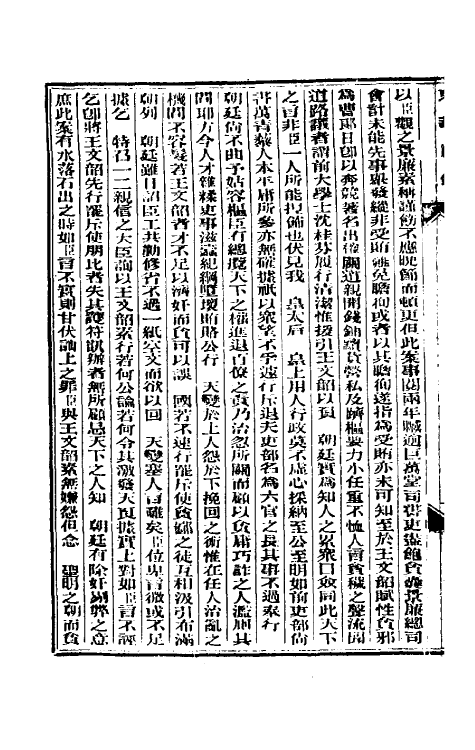 以臣觀之景廉素稱謹飭不應晚節而頓更但此案事閱兩年贓逾巨萬堂司書吏盡飽貪壑景廉總司
會計未能先事舉發縱非受賄難免瞻徇或者以其瞻徇遂指為受賄亦未可知至於王文韶賦性貪邪
為曹郎日即以奔競著名出儋關道親開錢鋪黷貨營私及躋樞要力小任重不恤人言貪穢之聲流聞
道路議者謂前大學士沈桂芬履行清潔惟援引王文韶以負　朝廷實為知人之累眾口僉同此天下
之言非臣一人所能捏飾也伏見我　皇太后　皇上用人行政莫不虛心採納至公至明如前吏部尚
書萬青藜人本平庸所參亦無確據祇以眾望不孚速行斥退夫吏部名為六官之長其事不過奉行
朝廷尚不曲予姑容樞臣有總攬天下之權進退百僚之責乃治忽所關而顧以貪庸巧詐之人濫廁其
間耶方今人才雜糅吏事滋蠹紀綱隳壞賄賂公行　天變於上人怨於下挽回之術惟在任人治亂之
機間不容髮若王文韶者才不足以濟奸而貪可以誤　國若不速行罷斥使貪鄙之徒互相汲引布滿
朝列　朝廷雖日詔臣工共勤修省不過一紙空文而欲以回　天變塞人言難矣臣位卑言微或不足
據乞　特召一二親信之大臣詢以王文韶素行若何公論若何令其激發天良據實上對如臣言不誣
乞即將王文韶先行罷斥使朋比者失其護符訊辦者無所顧忌天下之人知　朝廷有除奸剔弊之意
庶此案有水落石出之時如臣言不實則甘伏訕上之罪臣與王文韶素無嫌怨但念　聖明之朝而負